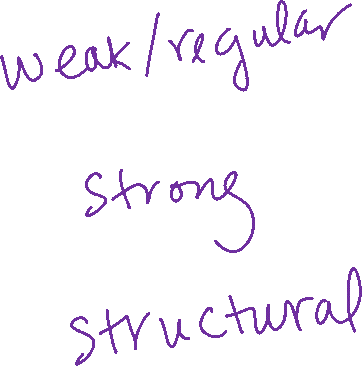 weak/regular
strong
structural